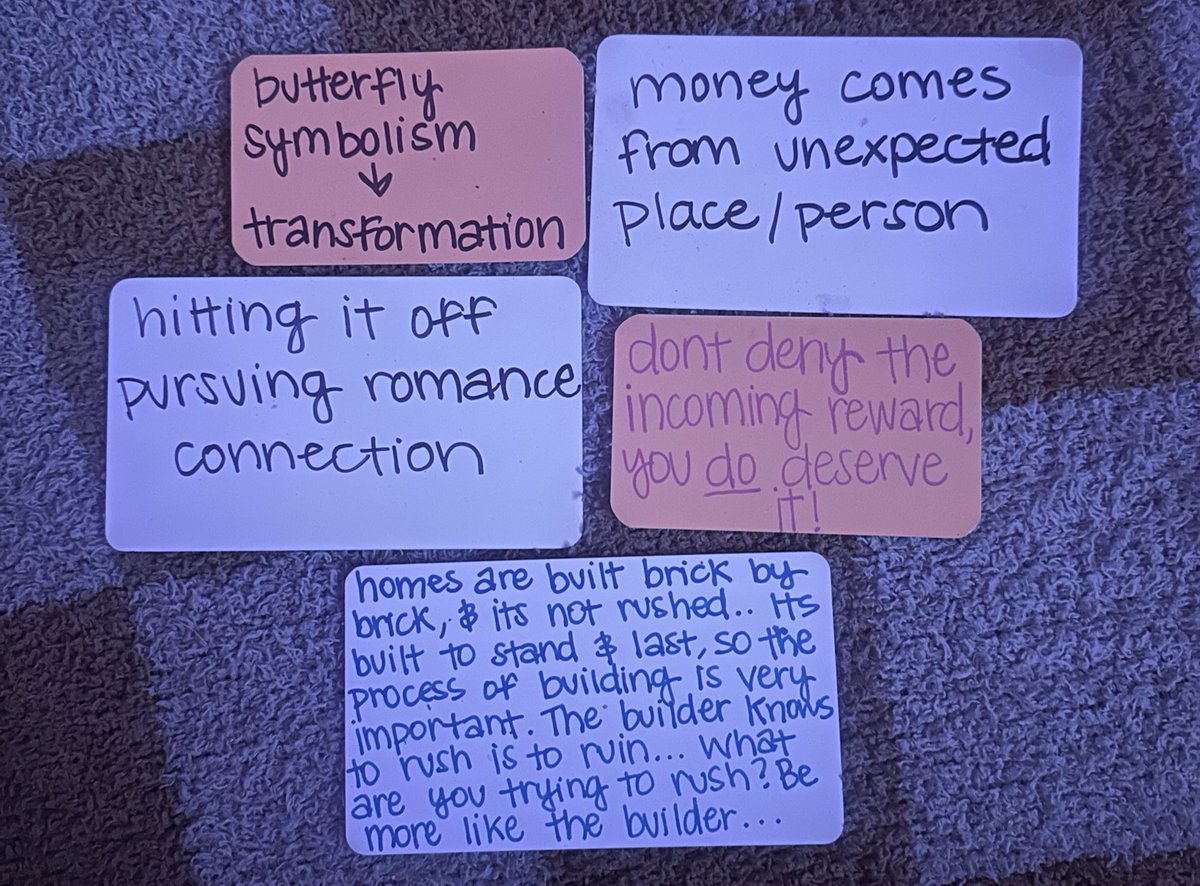 butterfly
symbolism
↓
transformation
money comes
from unexpected
place/person
hitting it off
pursuing romance
connection
dont deny the
incoming reward,
you do deserve
it!
homes are built brick by
brick, & its not rushed.. its
built to stand & last, so the
process of building is very
important. The builder knows
to rush is to ruin... what
are you trying to rush? Be
more like the builder...